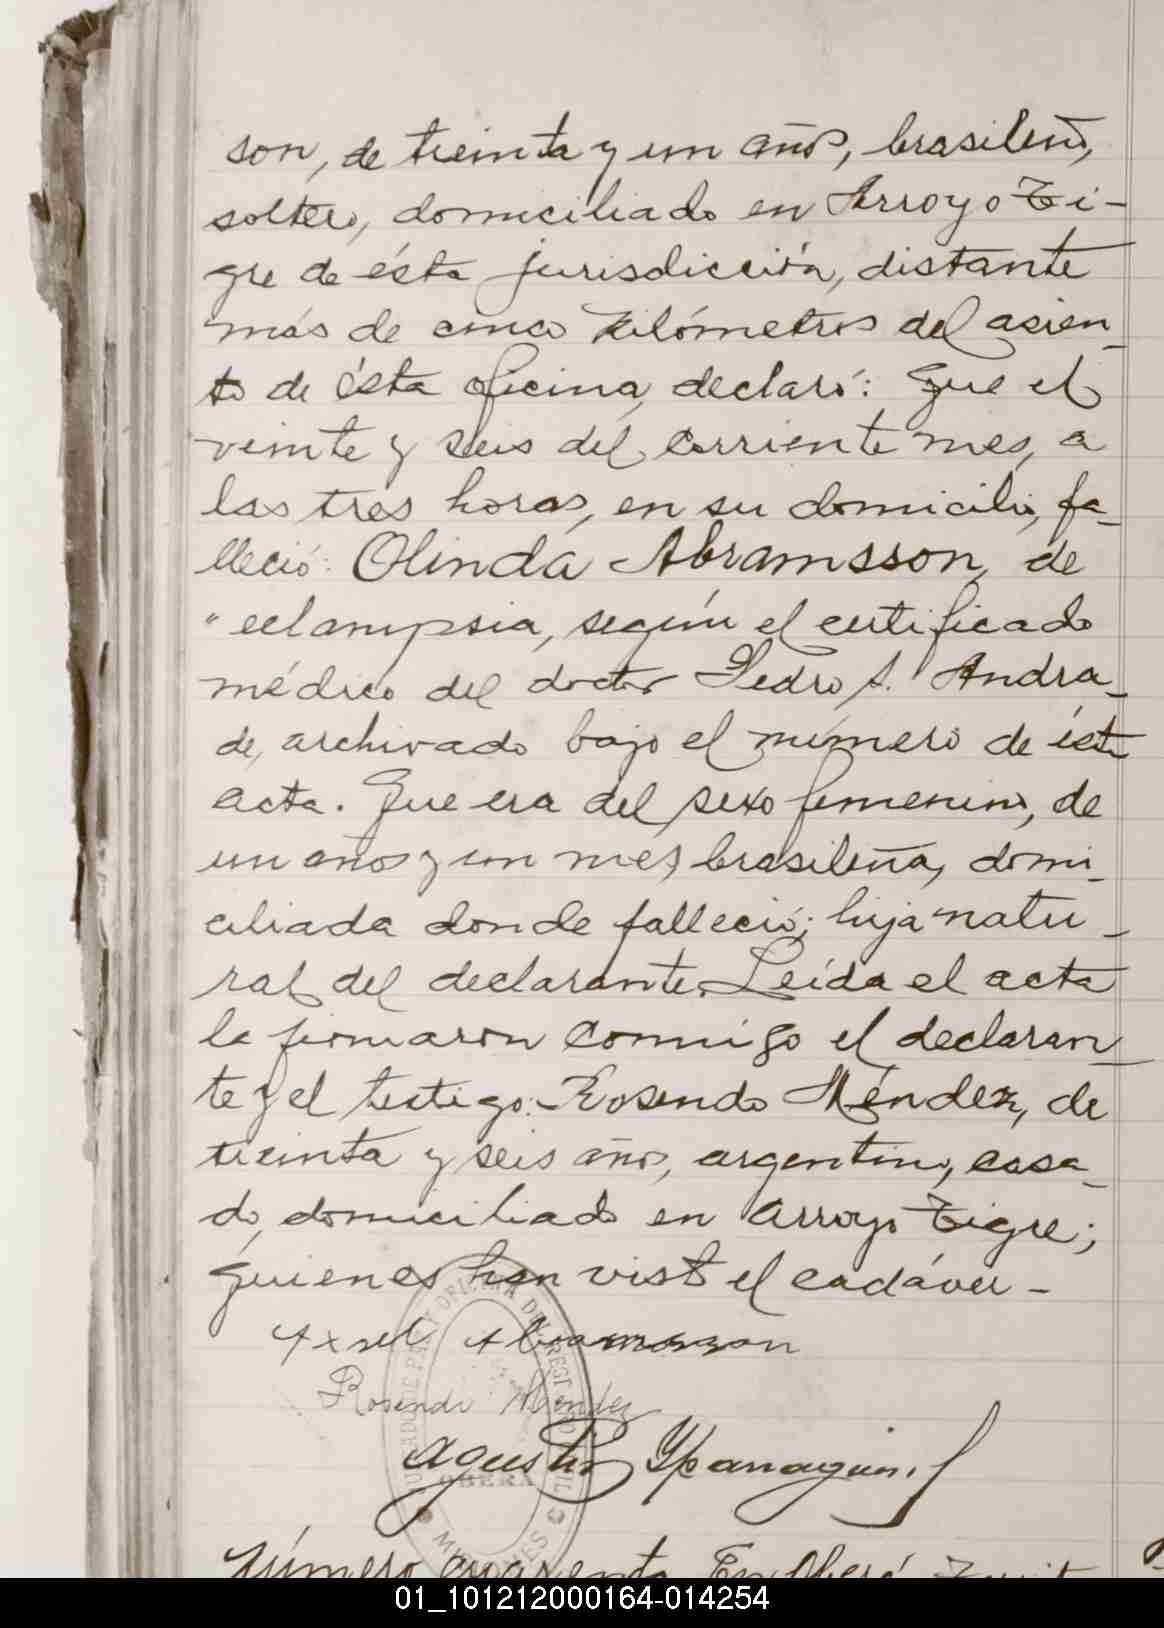 son, de treinta y un años, brasileño,
soltero, domiciliado en Arroyo Ti-
gre de ésta jurisdicción, distante
más de cinco kilómetros del asien-
to de ésta oficina, declaró: Que el
veinte y seis del corriente mes, a
las tres horas, en su domicilio, fa-
lleció: Olinda Abramsson, de
"eclampsia, según el certificado
médico del doctor Pedro A. Andra-
de, archivado bajo el número de ésta
acta. Que era del sexo femenino, de
un año y un mes, brasileña, domi-
ciliada donde falleció; hija natu-
ral del declarante. Leída el acta
la firmaron conmigo el declaran-
te y el testigo: Rosendo Méndez, de
treinta y seis años, argentino, casa-
do, domiciliado en Arroyo Tigre;
quienes han visto el cadáver -
Axel Abramsson
Rosendo Mendez
Agustín
JUZGADO DE PAZ Y OFICINA DEL REGISTRO CIVIL
OBERA
MISIONES
Número cuarenta En Oberá,
01_101212000164-014254